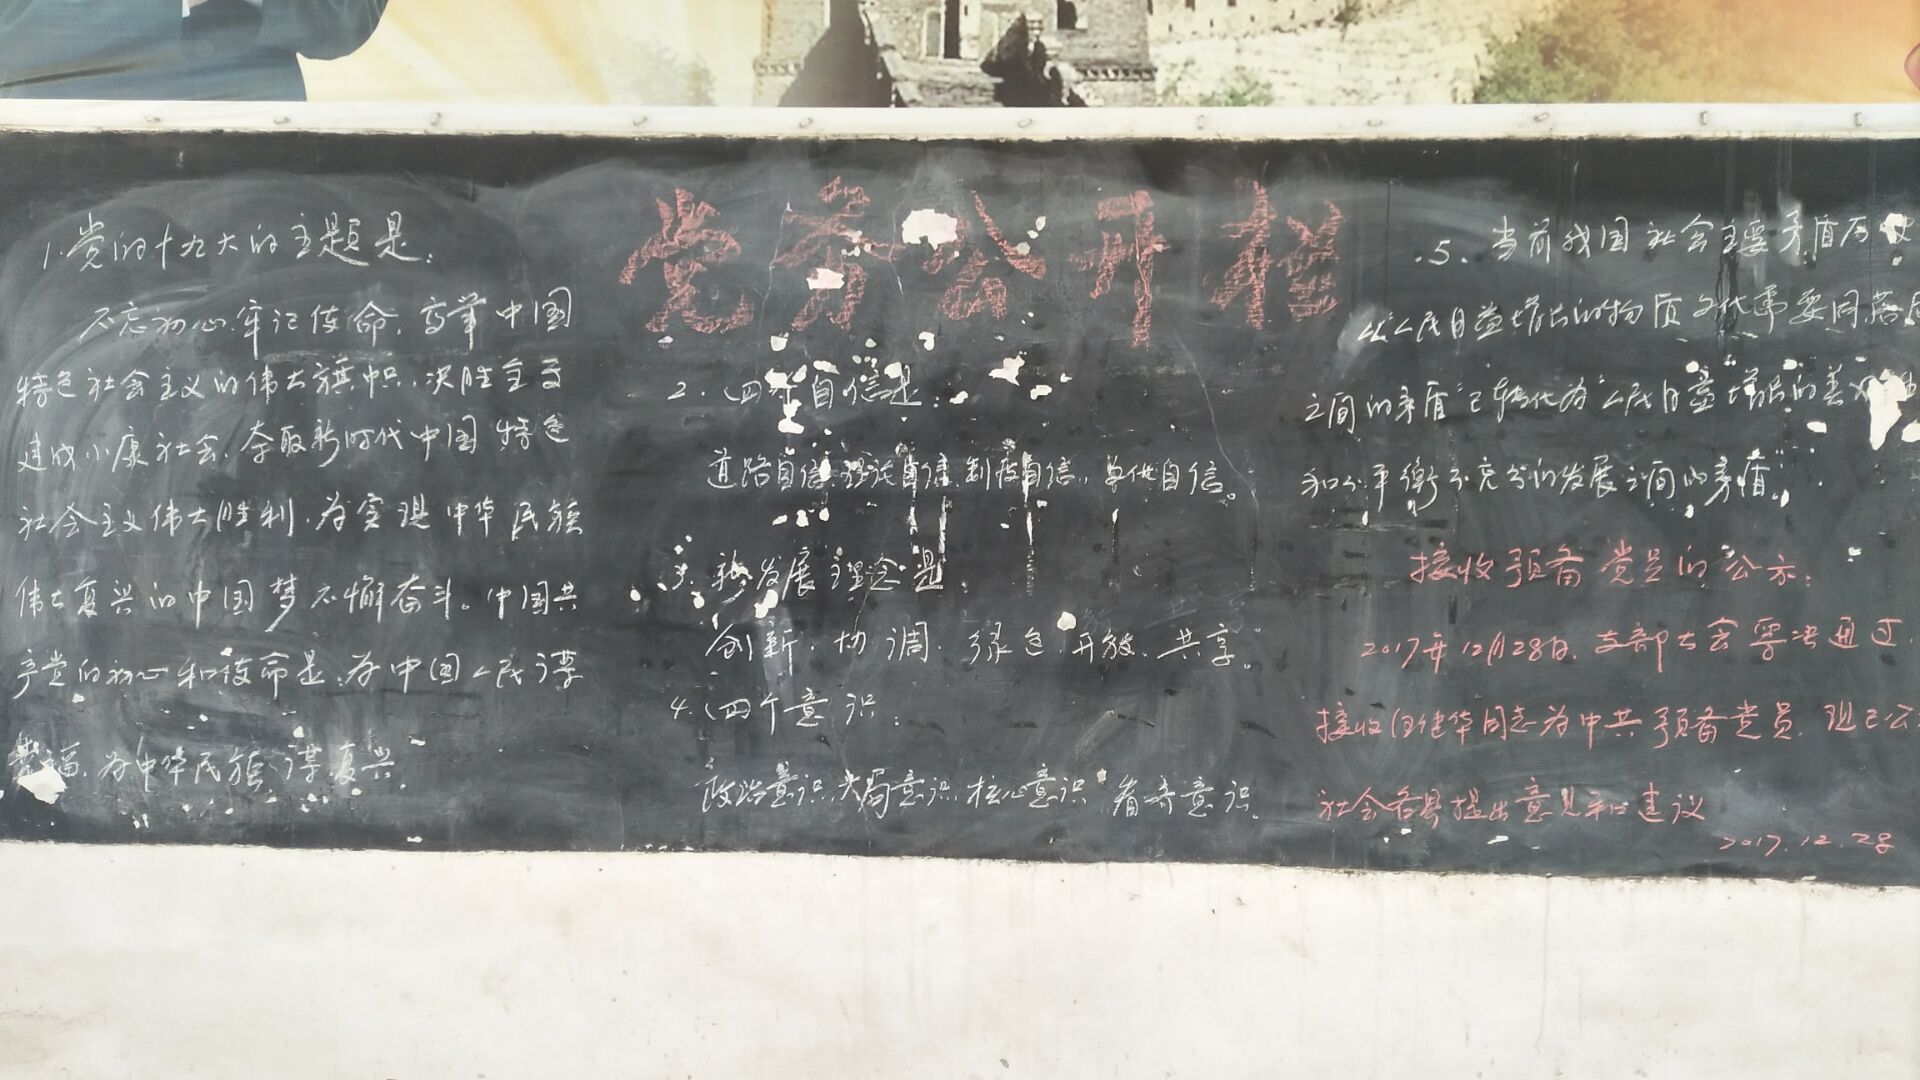 党务公开栏
1.党的十九大的主题是:
不忘初心,牢记使命,高举中国
特色社会主义的伟大旗帜,决胜全面
建成小康社会,夺取新时代中国特色
社会主义伟大胜利,为实现中华民族
伟大复兴的中国梦不懈奋斗。中国共
产党的初心和使命是:为中国人民谋
幸福,为中华民族谋复兴
2.四个自信是:
道路自信,理论自信,制度自信,文化自信。
3.新发展理念是:
创新,协调,绿色,开放,共享。
4.四个意识:
政治意识,大局意识,核心意识,看齐意识.
5、当前我国社会主要矛盾
人民日益增长的物质文化需要同落后
之间的矛盾"已转化为"人民日益增长的美好
和不平衡不充分的发展之间的矛盾。
接收预备党员的公示:
2017年12月28日,支部大会 通过,
接收 建华同志为中共预备党员,现已公
社会各界提出意见和建议
2017.12.28